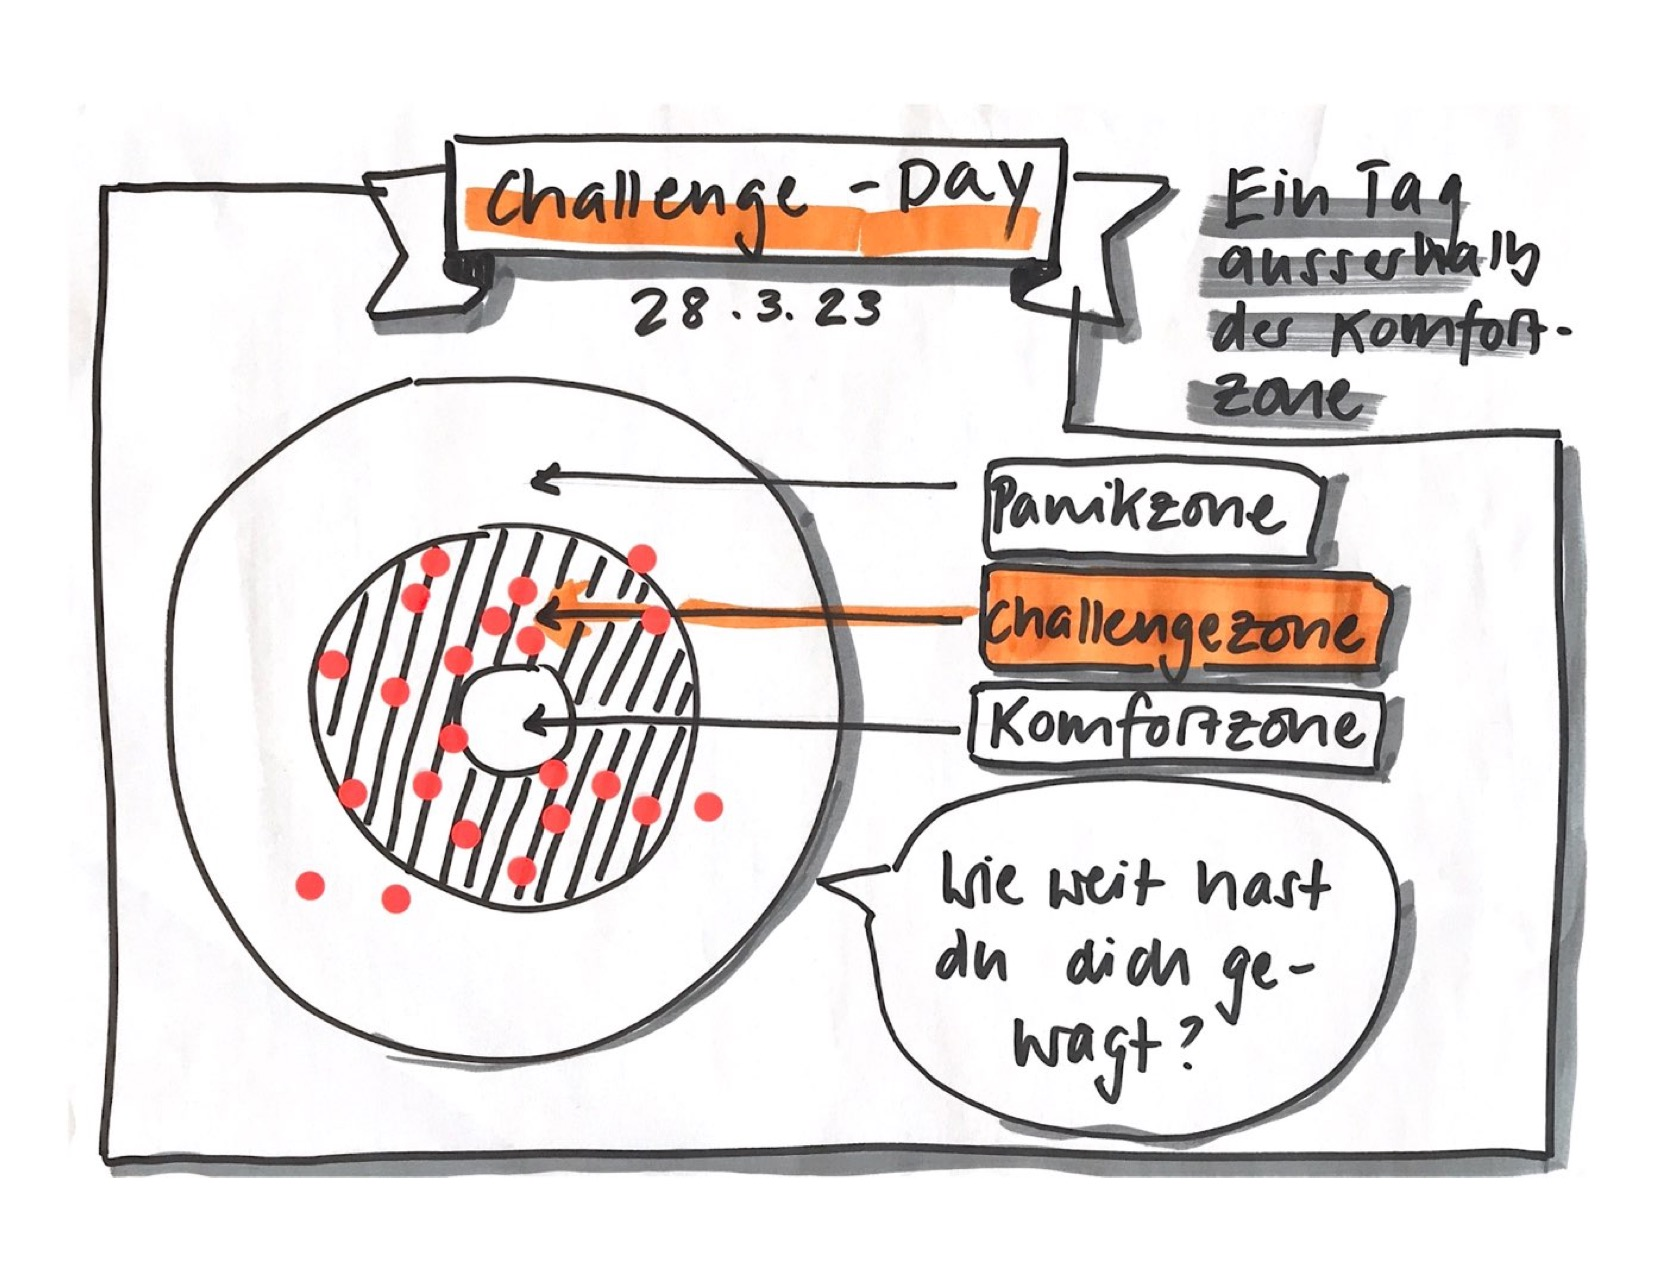 Challenge - Day
28.3.23
Ein Tag
ausserhalb
der Komfort-
zone
Panikzone
Challengezone
Komfortzone
Wie weit hast
du dich ge-
wagt?